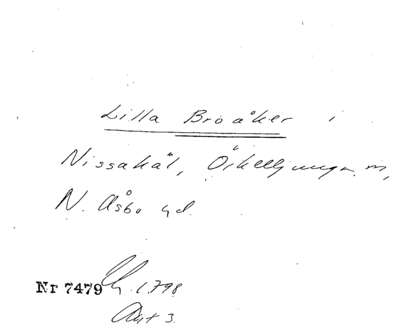 Lilla Broåker i
Nissakål, Örkelljunga sn,
N. Åsbo hd.
Nr 7479 1798
Akt 3.